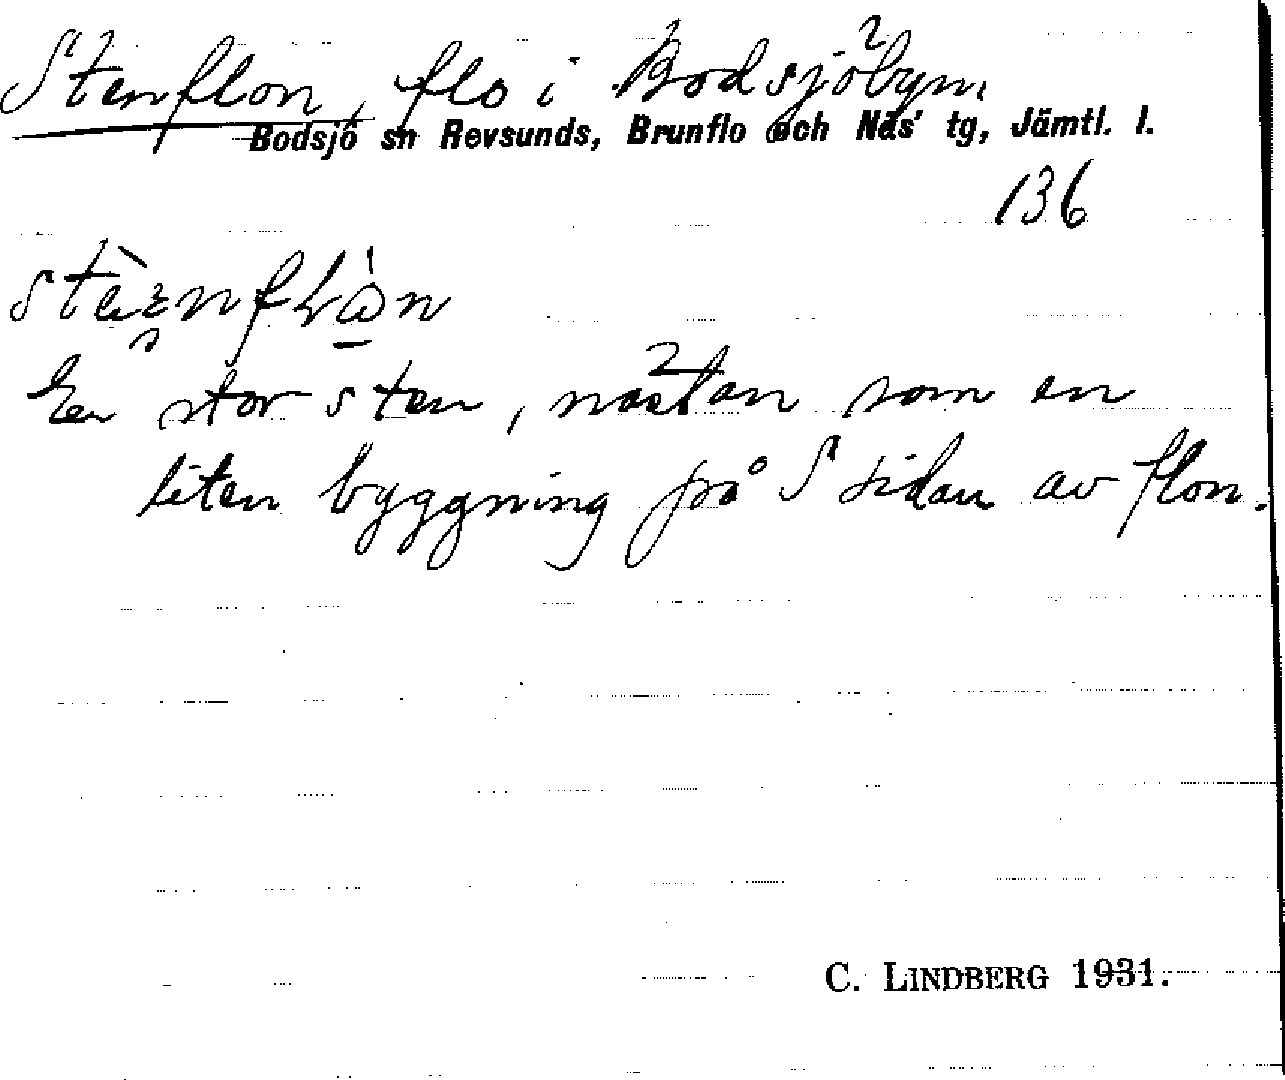 Stenflon, flo i Bodsjöbyn,
Bodsjö sn Revsunds, Brunflo och Näs' tg, Jämtl. l.
136
En stor sten, nästan som en
liten byggning på S sidan av flon.
C. LINDBERG 1931.